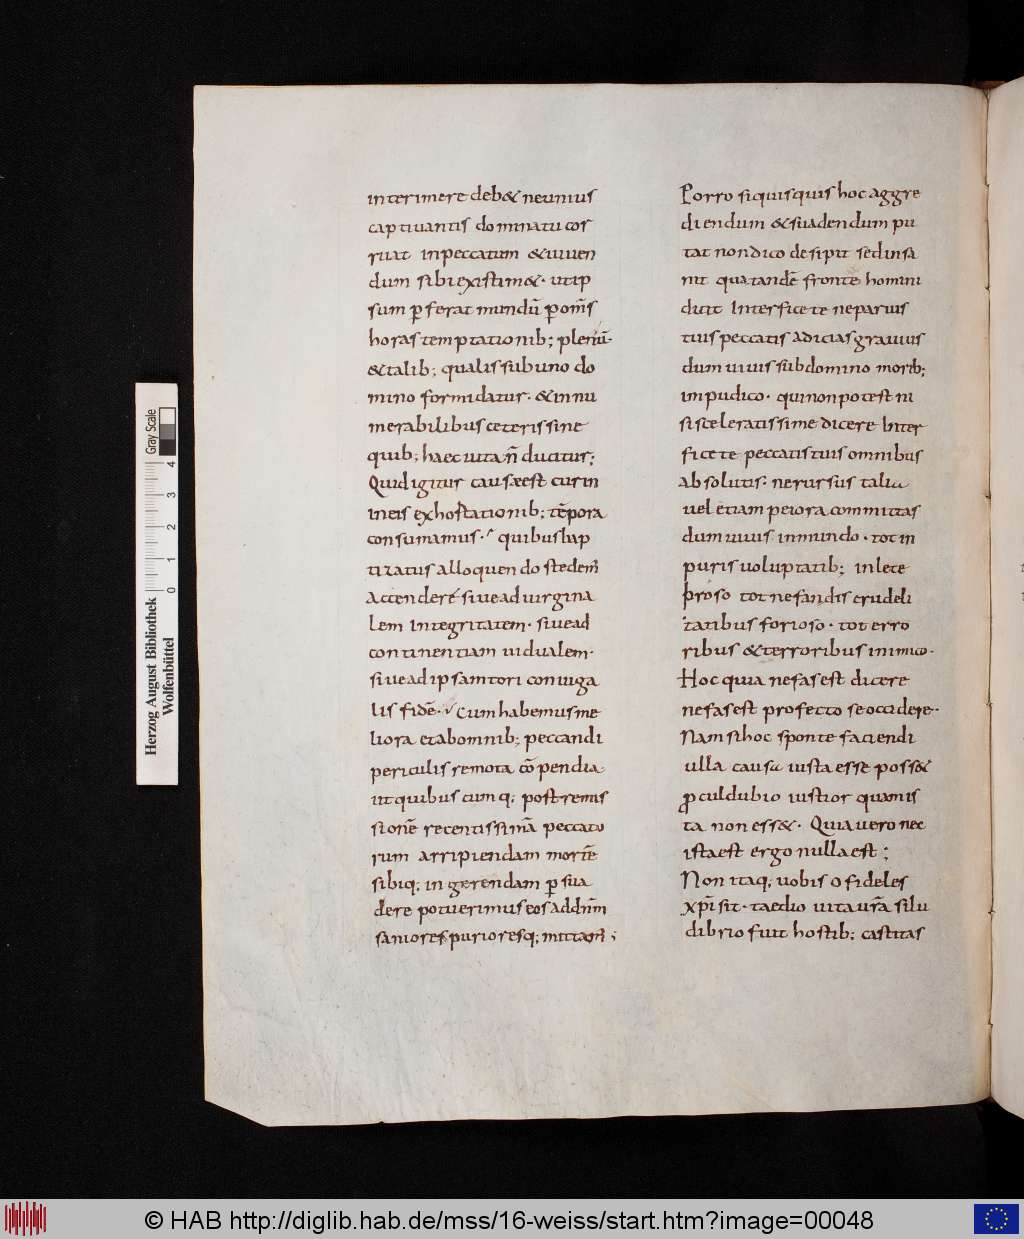 interimere deb& neunius
captivantis dominatu cor
ruat inpeccatum &viven
dum sibi existim&· utip
sum ꝑferat mundū ꝑom̄s
horas temptationib; plenū·
&talib; qualis sub uno do
mino formidatur· &innu
merabilibus ceteris sine
quib; haec vita n̄ ducitur;
Quid igitur causæ est cur in
ineis exhortationib; tēpora
consumamus· quibus bap
tizatus alloquendo stedem̄
Accendere sive ad virgina
lem integritatem· sive ad
continentiam vidualem·
sive ad ipsam tori coniuga
lis fidē· Cum habemus me
liora et ab omnib; peccandi
periculis remota cō pendia·
ut quibus cum q; post remis
sionē recentissimā peccato
rum arripiendam mortē
sibiq; ingerendam ꝑ sua
dere potuerimus eos add̄nm
saniores purioresq; mittam̄;
Porro si quis quis hoc aggre
diendum &suadendum pu
tat non dico desipit sed insa
nit qua tandē fronte homini
dicit Interfice te ne parvis
tuis peccatis adicias gravius
dum vivis sub domino morib;
impudico· qui non potest ni
si sceleratissime dicere Inter
fice te peccatis tuis omnibus
absolutis· ne rursus talia
vel etiam peiora committas
dum vivis in mundo· tot in
puris voluptatib; inlece
broso tot nefandis crudeli
tatibus forioso· tot erro
ribus &terroribus inimico·
Hoc quia nefas est dicere
nefas est profecto se occidere··
Nam si hoc sponte faciendi
ulla causa iusta esse poss&
ꝓculdubio iustior quam is
ta non ess&· Quia vero nec
ista est ergo nulla est;
Non itaq; vobis o fideles
xp̄i sit· taedio vita ur̄a si lu
dibrio fuit hostib; castitas
Herzog August Bibliothek
Wolfenbüttel
0 1 2 3 4
Gray Scale
© HAB http://diglib.hab.de/mss/16-weiss/start.htm?image=00048